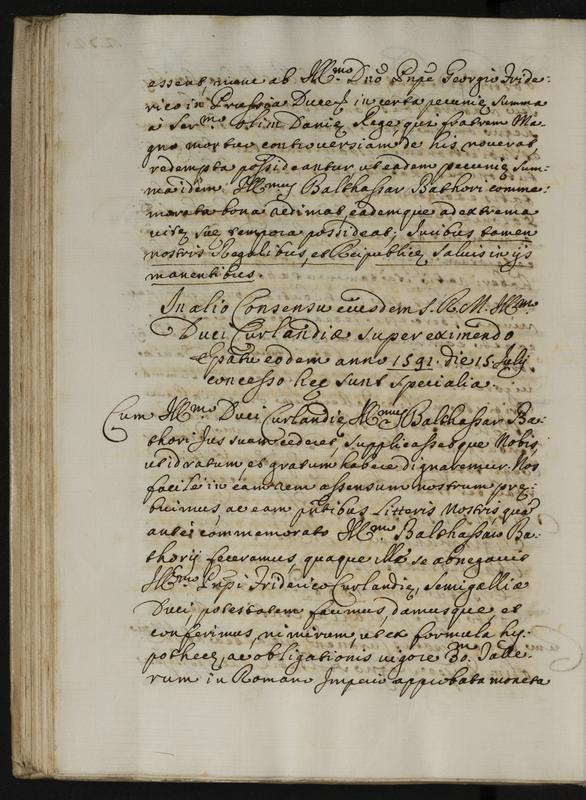 essent, nunc ab Ill.mo Dnō Pnpē Georgio Fride:
rico in Prussia Duce in certa pecunię summa
à Ser.mo olim Danię Rege, qui fratrem Ma
gno mortuo controversiam de his noverat
redempta possideantur, ut eadem pecunię sum:
ma idem Ill.mus Balthassar Bathori comme:
morata bona redimat, eademque ad extrema
vitę suę tempora possideat; Juribus tamen
nostris Regalibus, et Reipublicę salvis in ijs
manentibus.
In alio Consensu eiusdem S. R. M. Ill.mo
Duci Curlandiæ super eximendo
Epatu eodem anno 1591. die 15. Julij
concesso hęc sunt specialia.
Cum Ill.mo Duci Curlandię Ill.mus Balthassar Ba:
thori Jus suum cederet, supplicassetque Nobis,
ut id ratum et gratum habere dignaremur. Nos
facile in eam rem assensum nostrum prę:
buimus, ac eam pntibus Litteris nostris, quā
antei commemorato Ill.mo Balthassari Ba:
thorij feceramus, quaque ille se abnegavit
Ill.mo Pnpi Friderico Curlandię, Semigalliæ
Duci, potestatem facimus, damusque, et
conferimus, nimirum, ut ex formula hy:
pothecę, ac obligationis vigore 30.m Talle:
rum in Romano Imperio approbata moneta